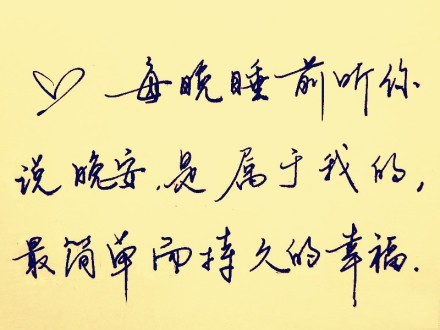 每晚睡前听你
说晚安.是属于我的,
最简单而持久的幸福.